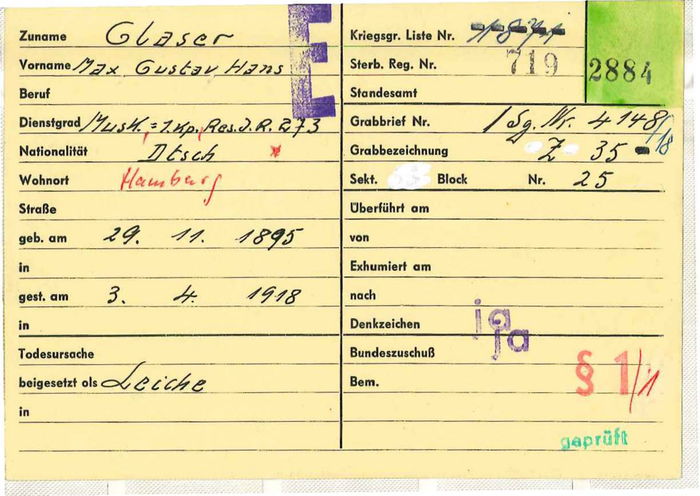 Zuname Glaser
Vorname Max Gustav Hans
Beruf
Dienstgrad Musk. = 1.Kp. Res.J.R. 273
Nationalität Dtsch *
Wohnort Hamburg
Straße
geb. am 29. 11. 1895
in
gest. am 3. 4. 1918
in
Todesursache
beigesetzt als Leiche
in
E
Kriegsgr. Liste Nr.
Sterb. Reg. Nr. 719
2884
Standesamt
Grabbrief Nr. 1 Sg. Nr. 4148/18
Grabbezeichnung Z 35
Sekt. Block Nr. 25
Überführt am
von
Exhumiert am
nach
Denkzeichen ja
Bundeszuschuß ja
Bem. § 1/1
geprüft